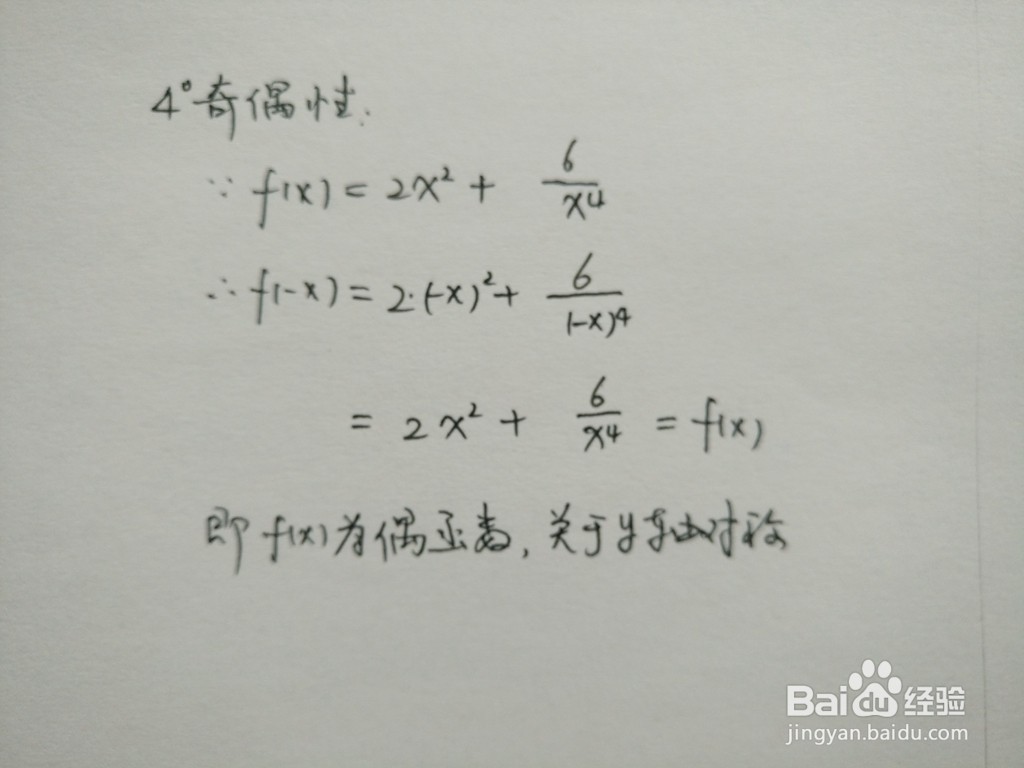 4°奇偶性.
∵ f(x) = 2x² + 6/x⁴
∴ f(-x) = 2·(-x)² + 6/(-x)⁴
= 2x² + 6/x⁴ = f(x)
即 f(x) 为偶函数, 关于y轴对称
Baidu经验
jingyan.baidu.com